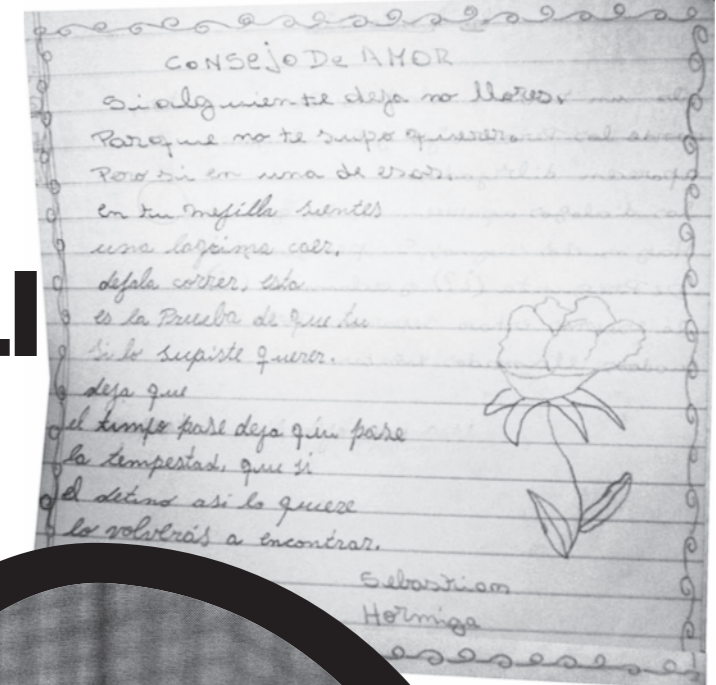 CONSEJO DE AMOR
Si alguien te deja no llores.
Porque no te supo quierer.
Pero si en una de esas
en tu mejilla sientes
una lagrima caer,
dejala correr, esta
es la Prueba de que tu
si lo supiste querer.
deja que
el tiempo pase deja que pase
la tempestad, que si
el detino asi lo quiere
lo volverás a encontrar.
Sebastian
Hormiga